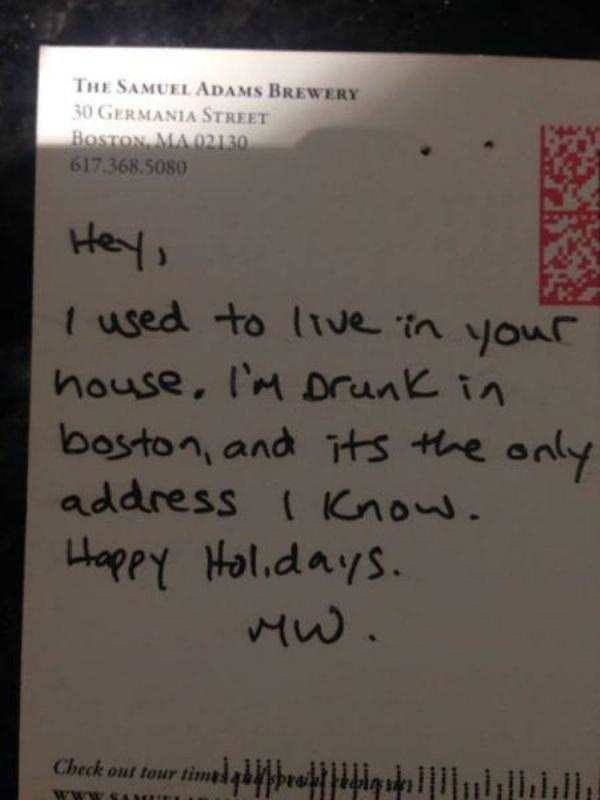 THE SAMUEL ADAMS BREWERY
30 GERMANIA STREET
BOSTON, MA 02130
617.368.5080
Hey,
I used to live in your
house. I'm Drunk in
boston, and its the only
address I Know.
Happy Holidays.
MW.
Check out tour times and special events at